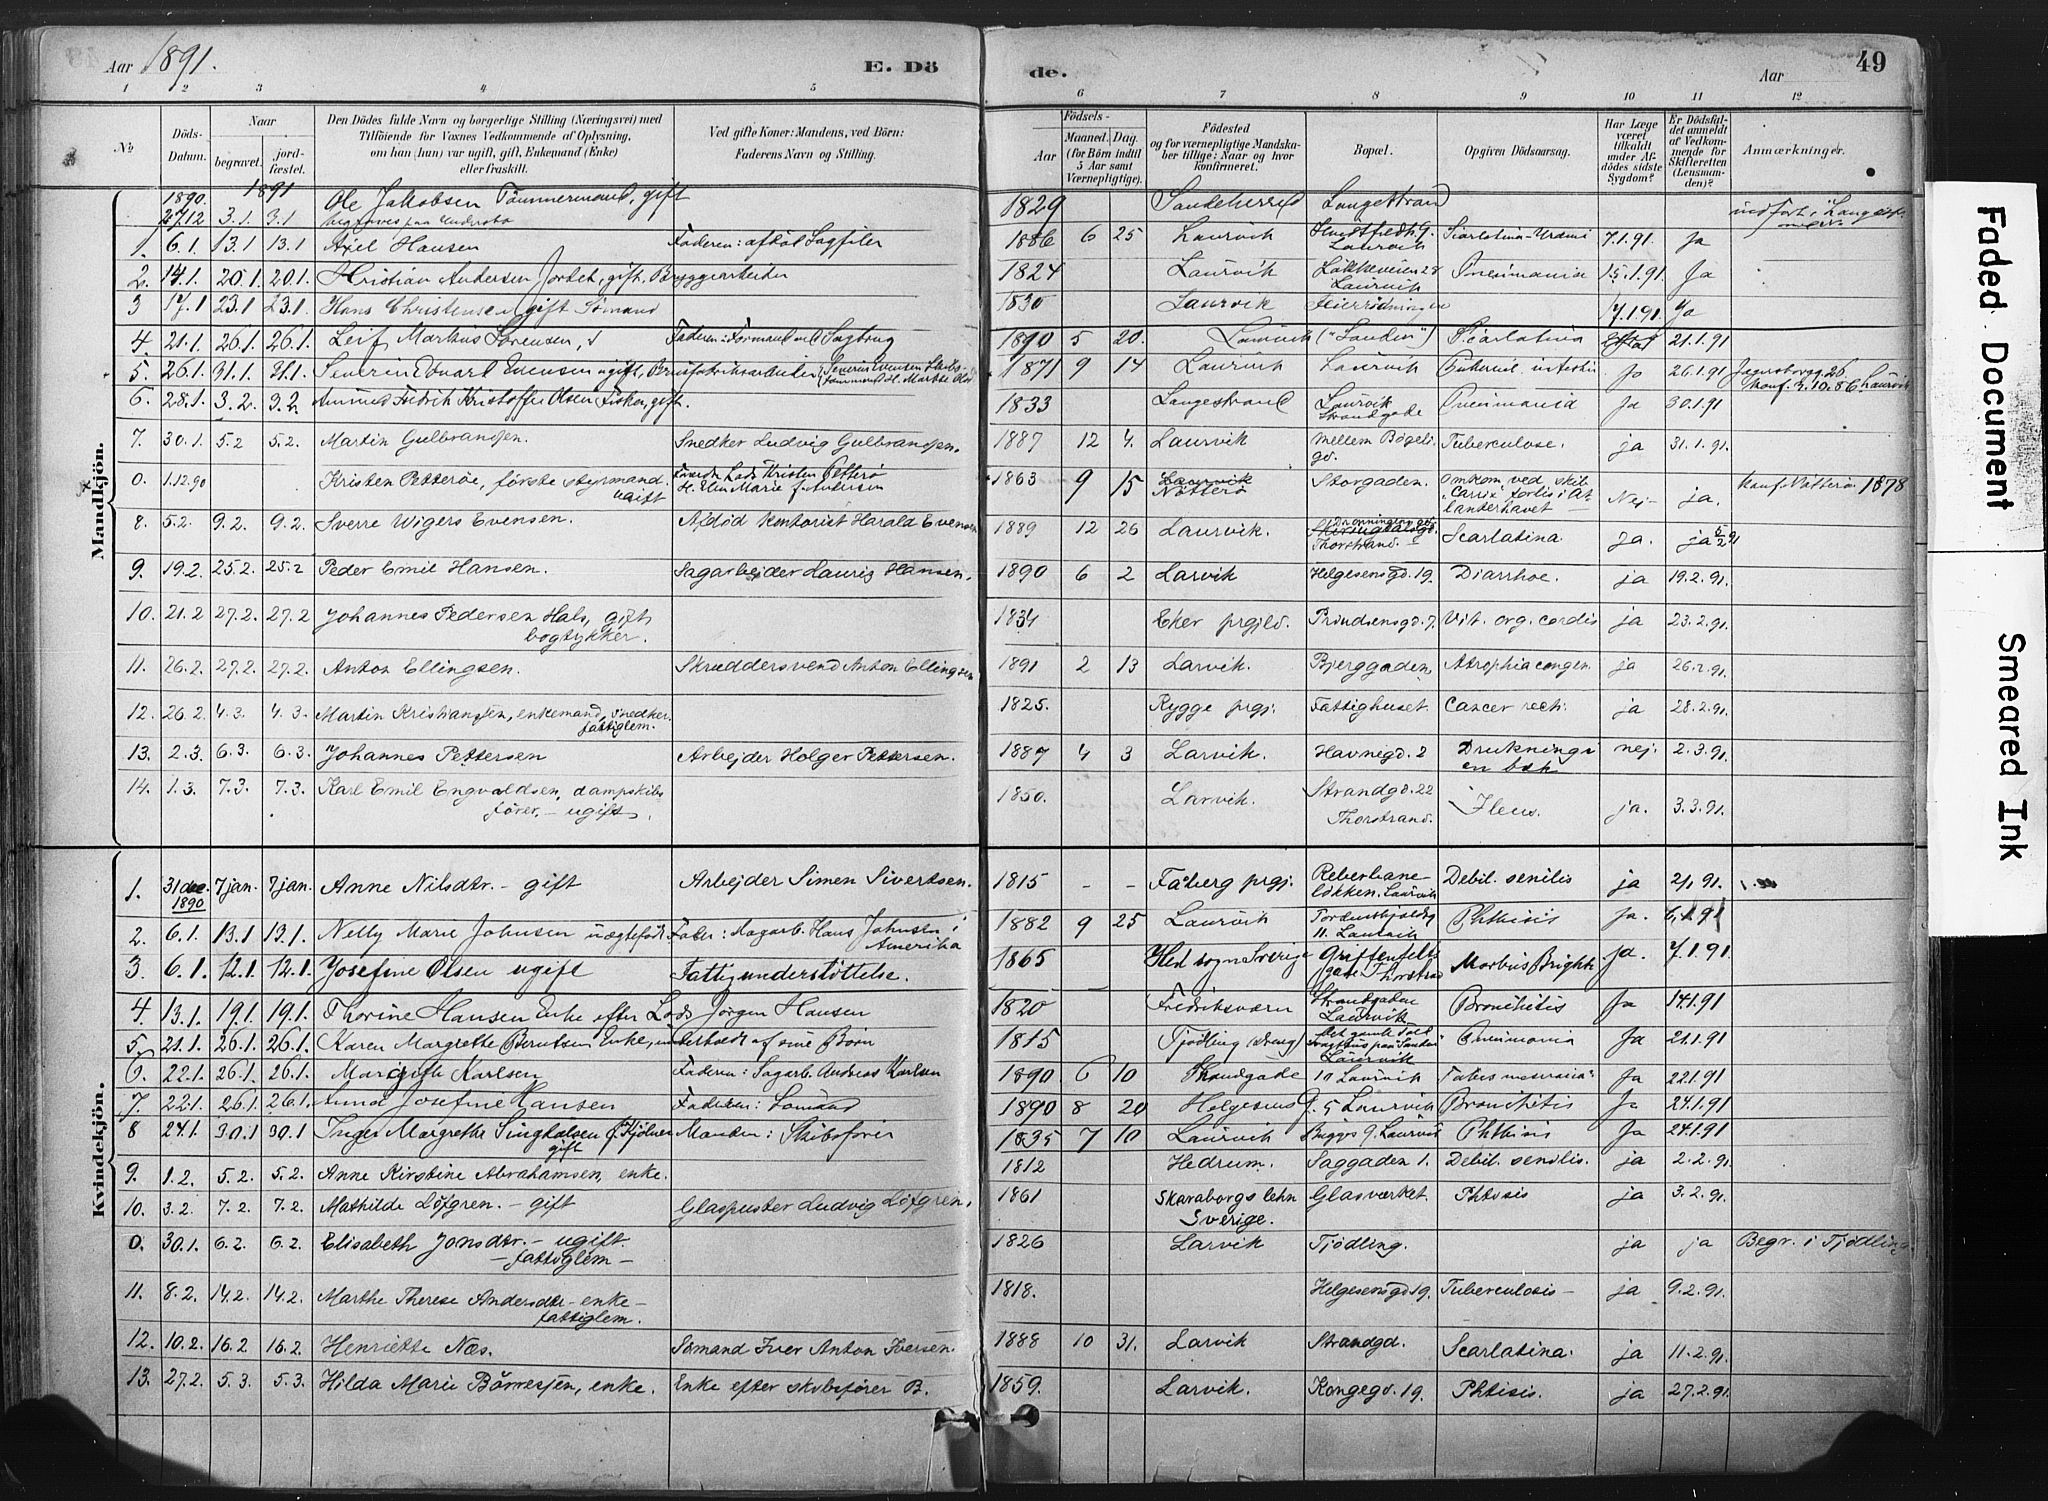 Aar 1891. E. Dö de. Aar 49
1 2 3 4 5 6 7 8 9 10 11 12
№ Döds-Datum. Naar begravet. jordfæstet. Den Dödes fulde Navn og borgerlige Stilling (Næringsvei) med Tilföiende for Voxnes Vedkommende af Oplysning, om han (hun) var ugift, gift, Enkemand (Enke) eller fraskilt. Ved gifte Koner: Mandens, ved Börn: Faderens Navn og Stilling. Födsels- Aar Maaned. Dag. (for Börn indtil 5 Aar samt Værnepligtige). Födested og for værnepligtige Mandskaber tillige: Naar og hvor konfirmeret. Bopæl. Opgiven Dödsaarsag. Har Læge været tilkaldt under Afdödes sidste Sygdom? Er Dödsfaldet anmeldt af Vedkommende for Skifteretten (Lensmanden)? Anmærkninger.
Mandkjön.
1890. 27.12 1891 3.1. 3.1 Ole Jakobsen Tömmermand, gift 1829 Sandeherred Langestrand
1. 6.1. 13.1 13.1 Axel Hansen Faderen: afdöd Sagfiler 1886 6 25 Laurvik Laurvik Scarlatina 7.1.91. Ja
2. 14.1. 20.1 20.1 Kristian Andersen Jordet, gift, Bryggearbeider 1824 Laurvik Lökkeveien 28 Laurvik Pneumonia 15.1.91. Ja
3 17.1 23.1 23.1 Hans Christensen gift Sömand 1830 Laurvik 17.1.91. Ja
4. 21.1. 26.1. 26.1. Leif Martius Sörensen, Faderen: Formand ved Sagbrug 1890 5 20. Laurvik ("Sanden") Scarlatina 21.1.91
5. 26.1. 31.1. 31.1. Severin Edvard Evensen ugift, 1871 9 14 Laurvik Laurvik Ja 26.1.91 Jegersborgg. 26 Konf. 3.10.86 Laurvik
6. 28.1. 3.2. 3.2 Amund Fredrik Kristoffer Olsen Fisker, gift. 1833 Langestrand Laurvik Strandgade Pneumonia Ja 30.1.91
7. 30.1. 5.2 5.2. Martin Gulbrandsen. Snedker Ludvig Gulbrandsen. 1887 12 4. Laurvik Mellem Bögeligd. Tuberculose. ja 31.1.91.
0. 1.12.90 Kristen Petteröe, förste styrmand. ugift Lods Kristen Petterö 1863 9 15 Laurvik Nötterö Storgaden. Omkom ved skib. forlis i Atlanterhavet Nej- ja. Konf. Nötterö 1878
8. 5.2. 9.2. 9.2. Sverre Wigers Evensen. Afdöd kontorist Harald Evensen 1889 12 26 Laurvik. Thorstrand. Scarlatina. Ja. ja 5/2 91
9. 19.2. 25.2. 25.2 Peder Emil Hansen. Sagarbejder Lauris Hansen. 1890 6 2 Larvik Helgesensgd. 19. Diarrhoe. ja 19.2.91.
10. 21.2 27.2. 27.2 Johannes Pedersen Hals, gift, bogtykker. 1834 Eker prgjld. Prindsensgd. 7. Vit. org. cordis ja 23.2.91.
11. 26.2. 27.2. 27.2. Anton Ellingsen. Skræddersvend Anton Ellingsen 1891 2 13 Larvik. Bjerggaden. Atrophia congen. ja 26.2.91.
12. 26.2. 4.3. 4.3. Martin Kristiansen, enkemand, snedker. fattiglem. 1825. Rygge prgj. Fattighuset. Cancer recti. ja 28.2.91.
13. 2.3. 6.3. 6.3. Johannes Pettersen Arbejder Holger Pettersen. 1887 4 3 Larvik. Havnegd. 2 Drukning i en bæk nej. 2.3.91.
14. 1.3. 7.3. 7.3. Karl Emil Engvaldsen, dampskibsförer, - ugift. 1850. Larvik. Strandgd. 22 Thorstrand. Ileus. ja. 3.3.91.
Kvindekjön.
1. 31 dec. 1890 7 jan. 7 jan. Anne Nilsdtr. - gift Arbejder Simen Sivertsen. 1815 - - Fåberg prgj. Reberbanelökken. Laurvik Debil. senilis ja 2/1 91.
2. 6.1. 13.1 13.1. Nelly Marie Johnsen uægtefödt Fader: Hans Johnsen i Amerika 1882 9 25 Laurvik Tordenskjoldsg 11. Laurvik Phthisis Ja. 6.1.91
3. 6.1. 12.1. 12.1. Josefine Olsen ugift Fattigunderstöttelse. 1865 Hed sogn Sverige Griffenfeldsgade Thorstrand Morbus Brightii Ja. 7.1.91
4. 13.1. 19.1. 19.1. Thorine Hansen Enke efter Lods Jörgen Hansen 1820 Fredriksværn Strandgaden Laurvik Bronchitis Ja 14.1.91
5. 21.1. 26.1. 26.1. Karen Margrethe Berntsen Enke, underholdt af sine Börn 1815 Tjödling Laurvik Pneumonia Ja 21.1.91
6. 22.1. 26.1. 26.1. Margith Karlsen Faderen: Sagarb. Andreas Karlsen 1890 6 10 Strandgade 10 Laurvik Ja 22.1.91
7. 22.1. 26.1. 26.1. Anna Josefine Hansen Faderen: Sömand 1890 8 20 Helgesens g. 5 Laurvik Bronchitis Ja 24.1.91
8 24.1. 30.1 30.1 Inger Margrethe gift Manden: Skibsförer 1835 7 10 Laurvik Laurvik Phthisis Ja 24.1.91
9. 1.2. 5.2. 5.2. Anne Kirstine Abrahamsen, enke. 1812 Hedrum. Saggaden 1. Debil. senilis. ja 2.2.91.
10. 3.2. 7.2. 7.2. Mathilde Löfgren. - gift Glaspuster Ludvig Löfgren. 1861 Skaraborgs lehn Sverige. Glasværket. Phtisis ja 3.2.91.
0. 30.1. 6.2. 6.2. Elisabeth Jonsdtr. - ugift. - fattiglem - 1826 Larvik Tjödling. ja ja Begr. i Tjödling
11. 8.2. 14.2. 14.2. Marthe Therese Andersdtr - enke - fattiglem. 1818. Helgesensgd 19. Tuberculosis - ja 9.2.91.
12. 10.2. 16.2 16.2. Henriette Næs. Sömand Iver Anton Iversen. 1888 10 31. Larvik Strandgd. Scarlatina. ja 11.2.91.
13. 27.2. 5.3. 5.3. Hilda Marie Börresen, enke. Enke efter skibsförer B. 1859. Larvik. Kongegd. 19. Phtisis. ja 27.2.91.
Faded Document
Smeared Ink